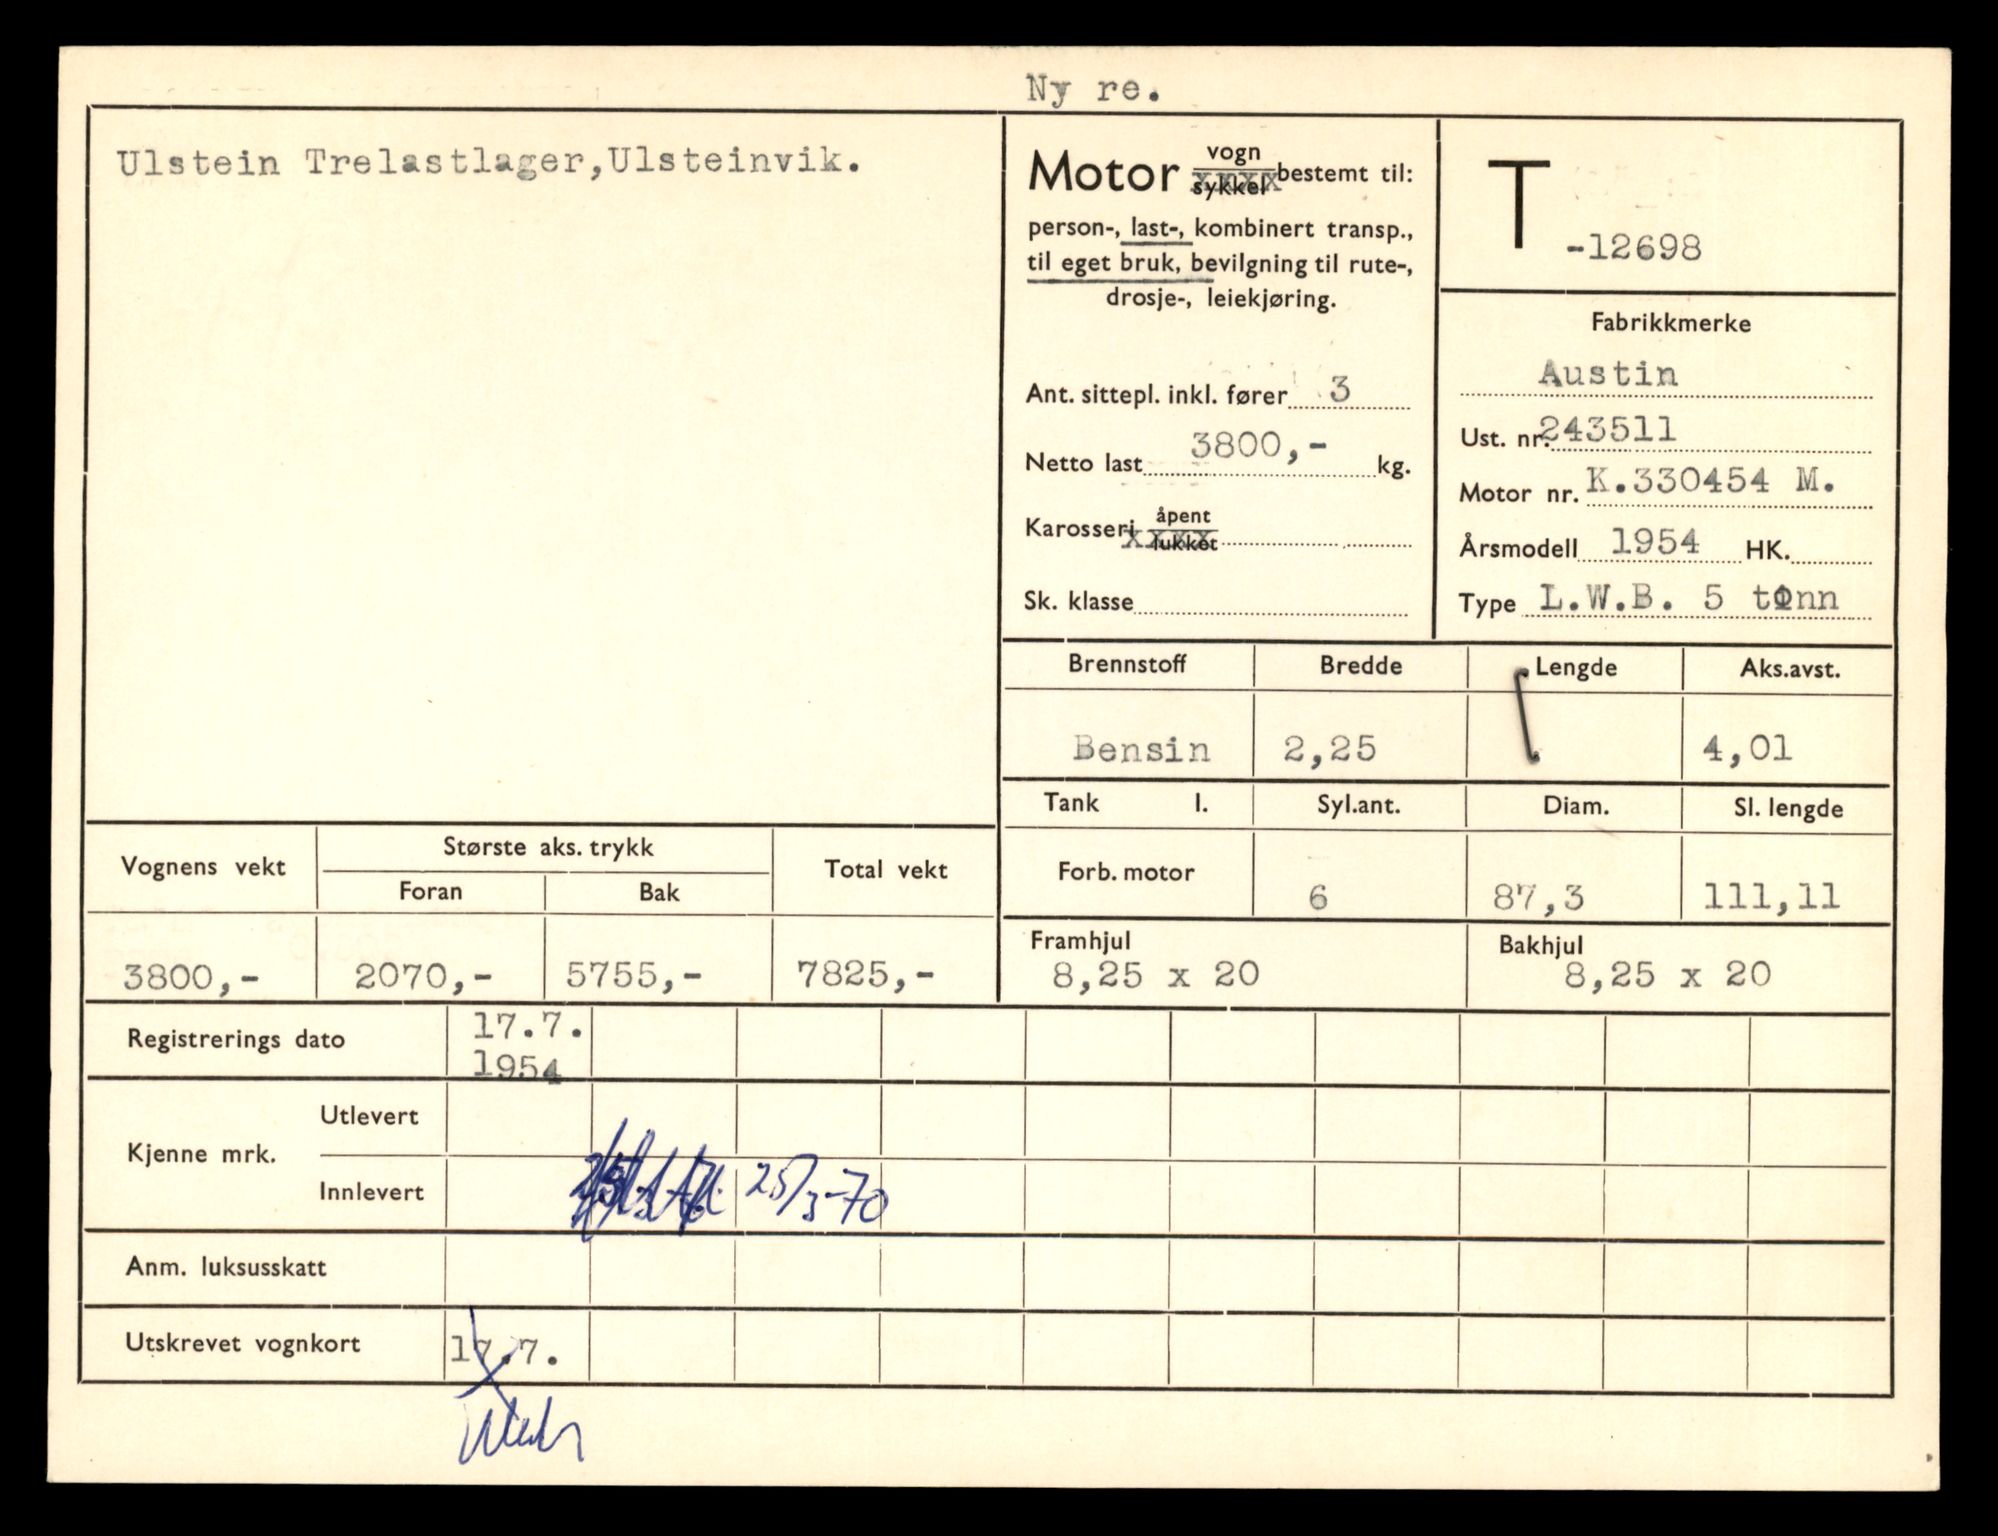 Ny re.
Ulstein Trelastlager,Ulsteinvik.
Motor vogn sykkel bestemt til:
person-, last-, kombinert transp.,
til eget bruk, bevilgning til rute-,
drosje-, leiekjøring.
Ant. sittepl. inkl. fører 3
Netto last 3800,- kg.
Karosseri åpent lukket
Sk. klasse
T -12698
Fabrikkmerke
Austin
Ust. nr. 243511
Motor nr. K.330454 M.
Årsmodell 1954 HK.
Type L.W.B. 5 tonn
Brennstoff Bredde Lengde Aks.avst.
Bensin 2,25 4,01
Tank l. Syl.ant. Diam. Sl. lengde
Forb. motor 6 87,3 111,11
Framhjul Bakhjul
8,25 x 20 8,25 x 20
Vognens vekt Største aks. trykk Total vekt
Foran Bak
3800,- 2070,- 5755,- 7825,-
Registrerings dato 17.7.
1954
Kjenne mrk. Utlevert
Innlevert 25/3-70
Anm. luksusskatt
Utskrevet vognkort 17.7.